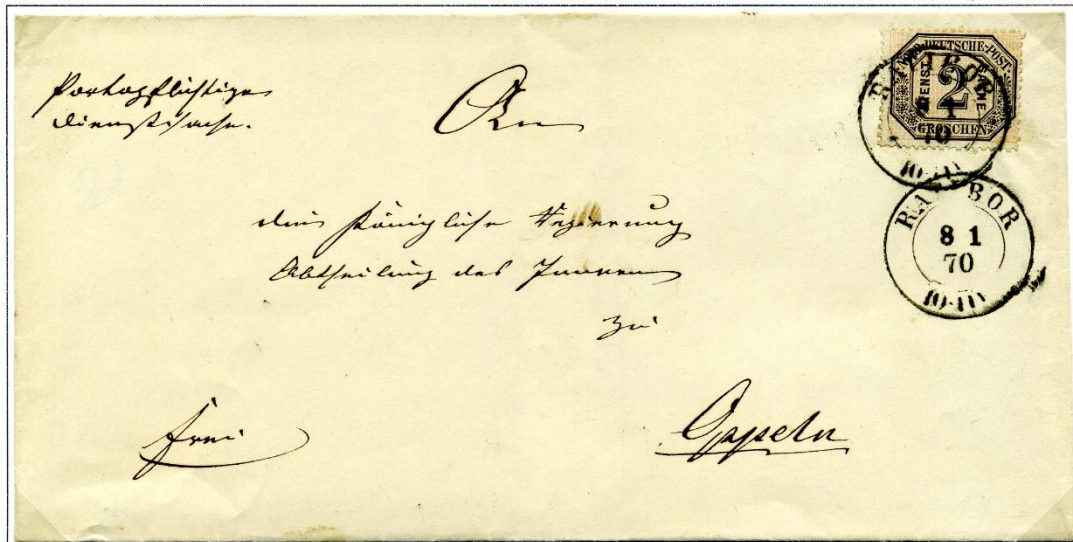 Portopflichtige
Dienstsache.
An
die Königliche Regierung
Abtheilung des Innern
zu
Oppeln
frei
NORDDEUTSCHE-POST
DIENST MARKE
2
GROSCHEN
RATIBOR
8 1
70
RATIBOR
8 1
70